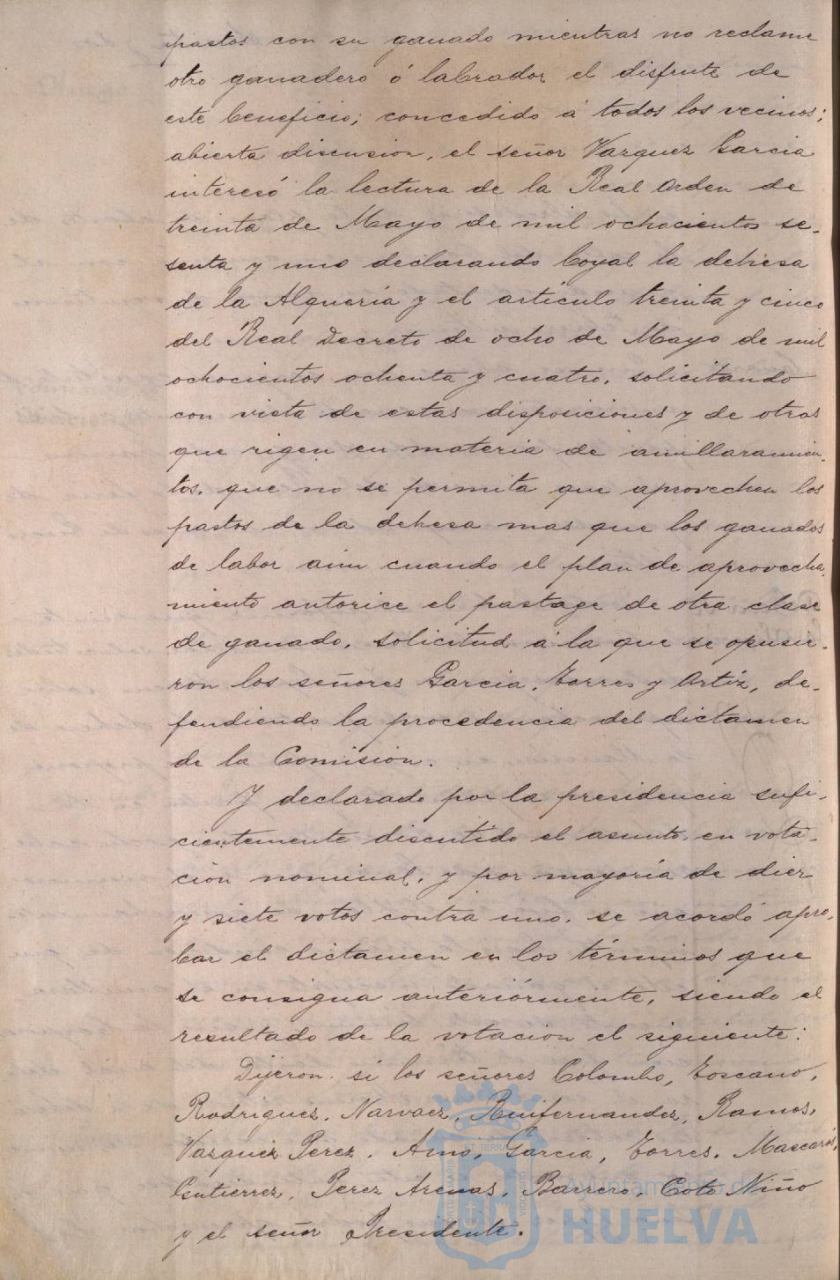 pastos con su ganado mientras no reclame
otro ganadero ó labrador el disfrute de
este beneficio; concedido á todos los vecinos;
abierta discusion, el señor Vazquez Garcia
interesó la lectura de la Real Orden de
treinta de Mayo de mil ochocientos se-
senta y uno declarando boyal la dehesa
de la Alqueria y el artículo treinta y cinco
del Real Decreto de ocho de Mayo de mil
ochocientos ochenta y cuatro, solicitando
con vista de estas disposiciones y de otras
que rigen en materia de amillaramien-
tos, que no se permita que aprovechen los
pastos de la dehesa mas que los ganados
de labor aun cuando el plan de aprovecha-
miento autorice el pastage de otra clase
de ganado, solicitud á la que se opusie-
ron los señores Garcia, Torres y Ortiz, de-
fendiendo la procedencia del dictamen
de la Comision.
Y declarado por la presidencia sufi-
cientemente discutido el asunto, en vota-
ción nominal, y por mayoría de diez
y siete votos contra uno, se acordó apro-
bar el dictamen en los términos que
se consigna anteriormente, siendo el
resultado de la votacion el siguiente:
Dijeron si los señores Colombo, Toscano,
Rodriguez, Narvaez, Ruifernandez, Ramos,
Vazquez Perez, Amo, Garcia, Torres, Mascarós,
Gutierrez, Perez Arenas, Barrero, Coto, Niño
y el señor Presidente.
Ayuntamiento de
HUELVA